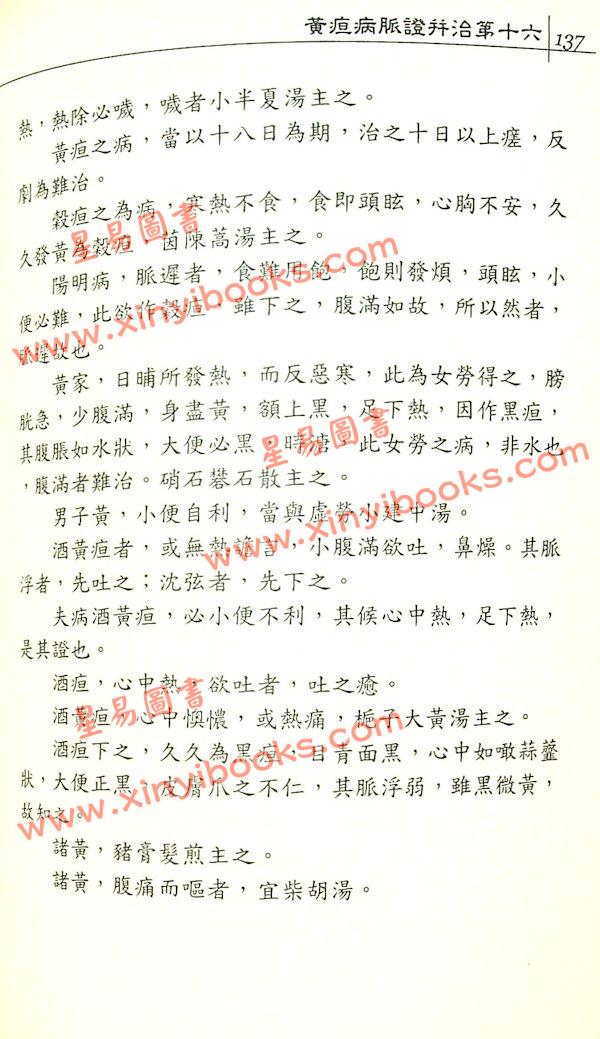 黃疸病脈證并治第十六 137
熱，熱除必噦，噦者小半夏湯主之。
黃疸之病，當以十八日為期，治之十日以上瘥，反
劇為難治。
穀疸之為病，寒熱不食，食即頭眩，心胸不安，久
久發黃為穀疸，茵陳蒿湯主之。
陽明病，脈遲者，食難用飽，飽則發煩，頭眩，小
便必難，此欲作穀疸，雖下之，腹滿如故，所以然者，
脈遲故也。
黃家，日晡所發熱，而反惡寒，此為女勞得之，膀
胱急，少腹滿，身盡黃，額上黑，足下熱，因作黑疸，
其腹脹如水狀，大便必黑，時溏，此女勞之病，非水也
，腹滿者難治。硝石礬石散主之。
男子黃，小便自利，當與虛勞小建中湯。
酒黃疸者，或無熱譫言，小腹滿欲吐，鼻燥。其脈
浮者，先吐之；沈弦者，先下之。
夫病酒黃疸，必小便不利，其候心中熱，足下熱，
是其證也。
酒疸，心中熱，欲吐者，吐之癒。
酒黃疸，心中懊憹，或熱痛，梔子大黃湯主之。
酒疸下之，久久為黑疸，目青面黑，心中如噉蒜虀
狀，大便正黑，皮膚爪之不仁，其脈浮弱，雖黑微黃，
故知之。
諸黃，豬膏髮煎主之。
諸黃，腹痛而嘔者，宜柴胡湯。
星易圖書
www.xinyibooks.com
星易圖書
www.xinyibooks.com
星易圖書
www.xinyibooks.com